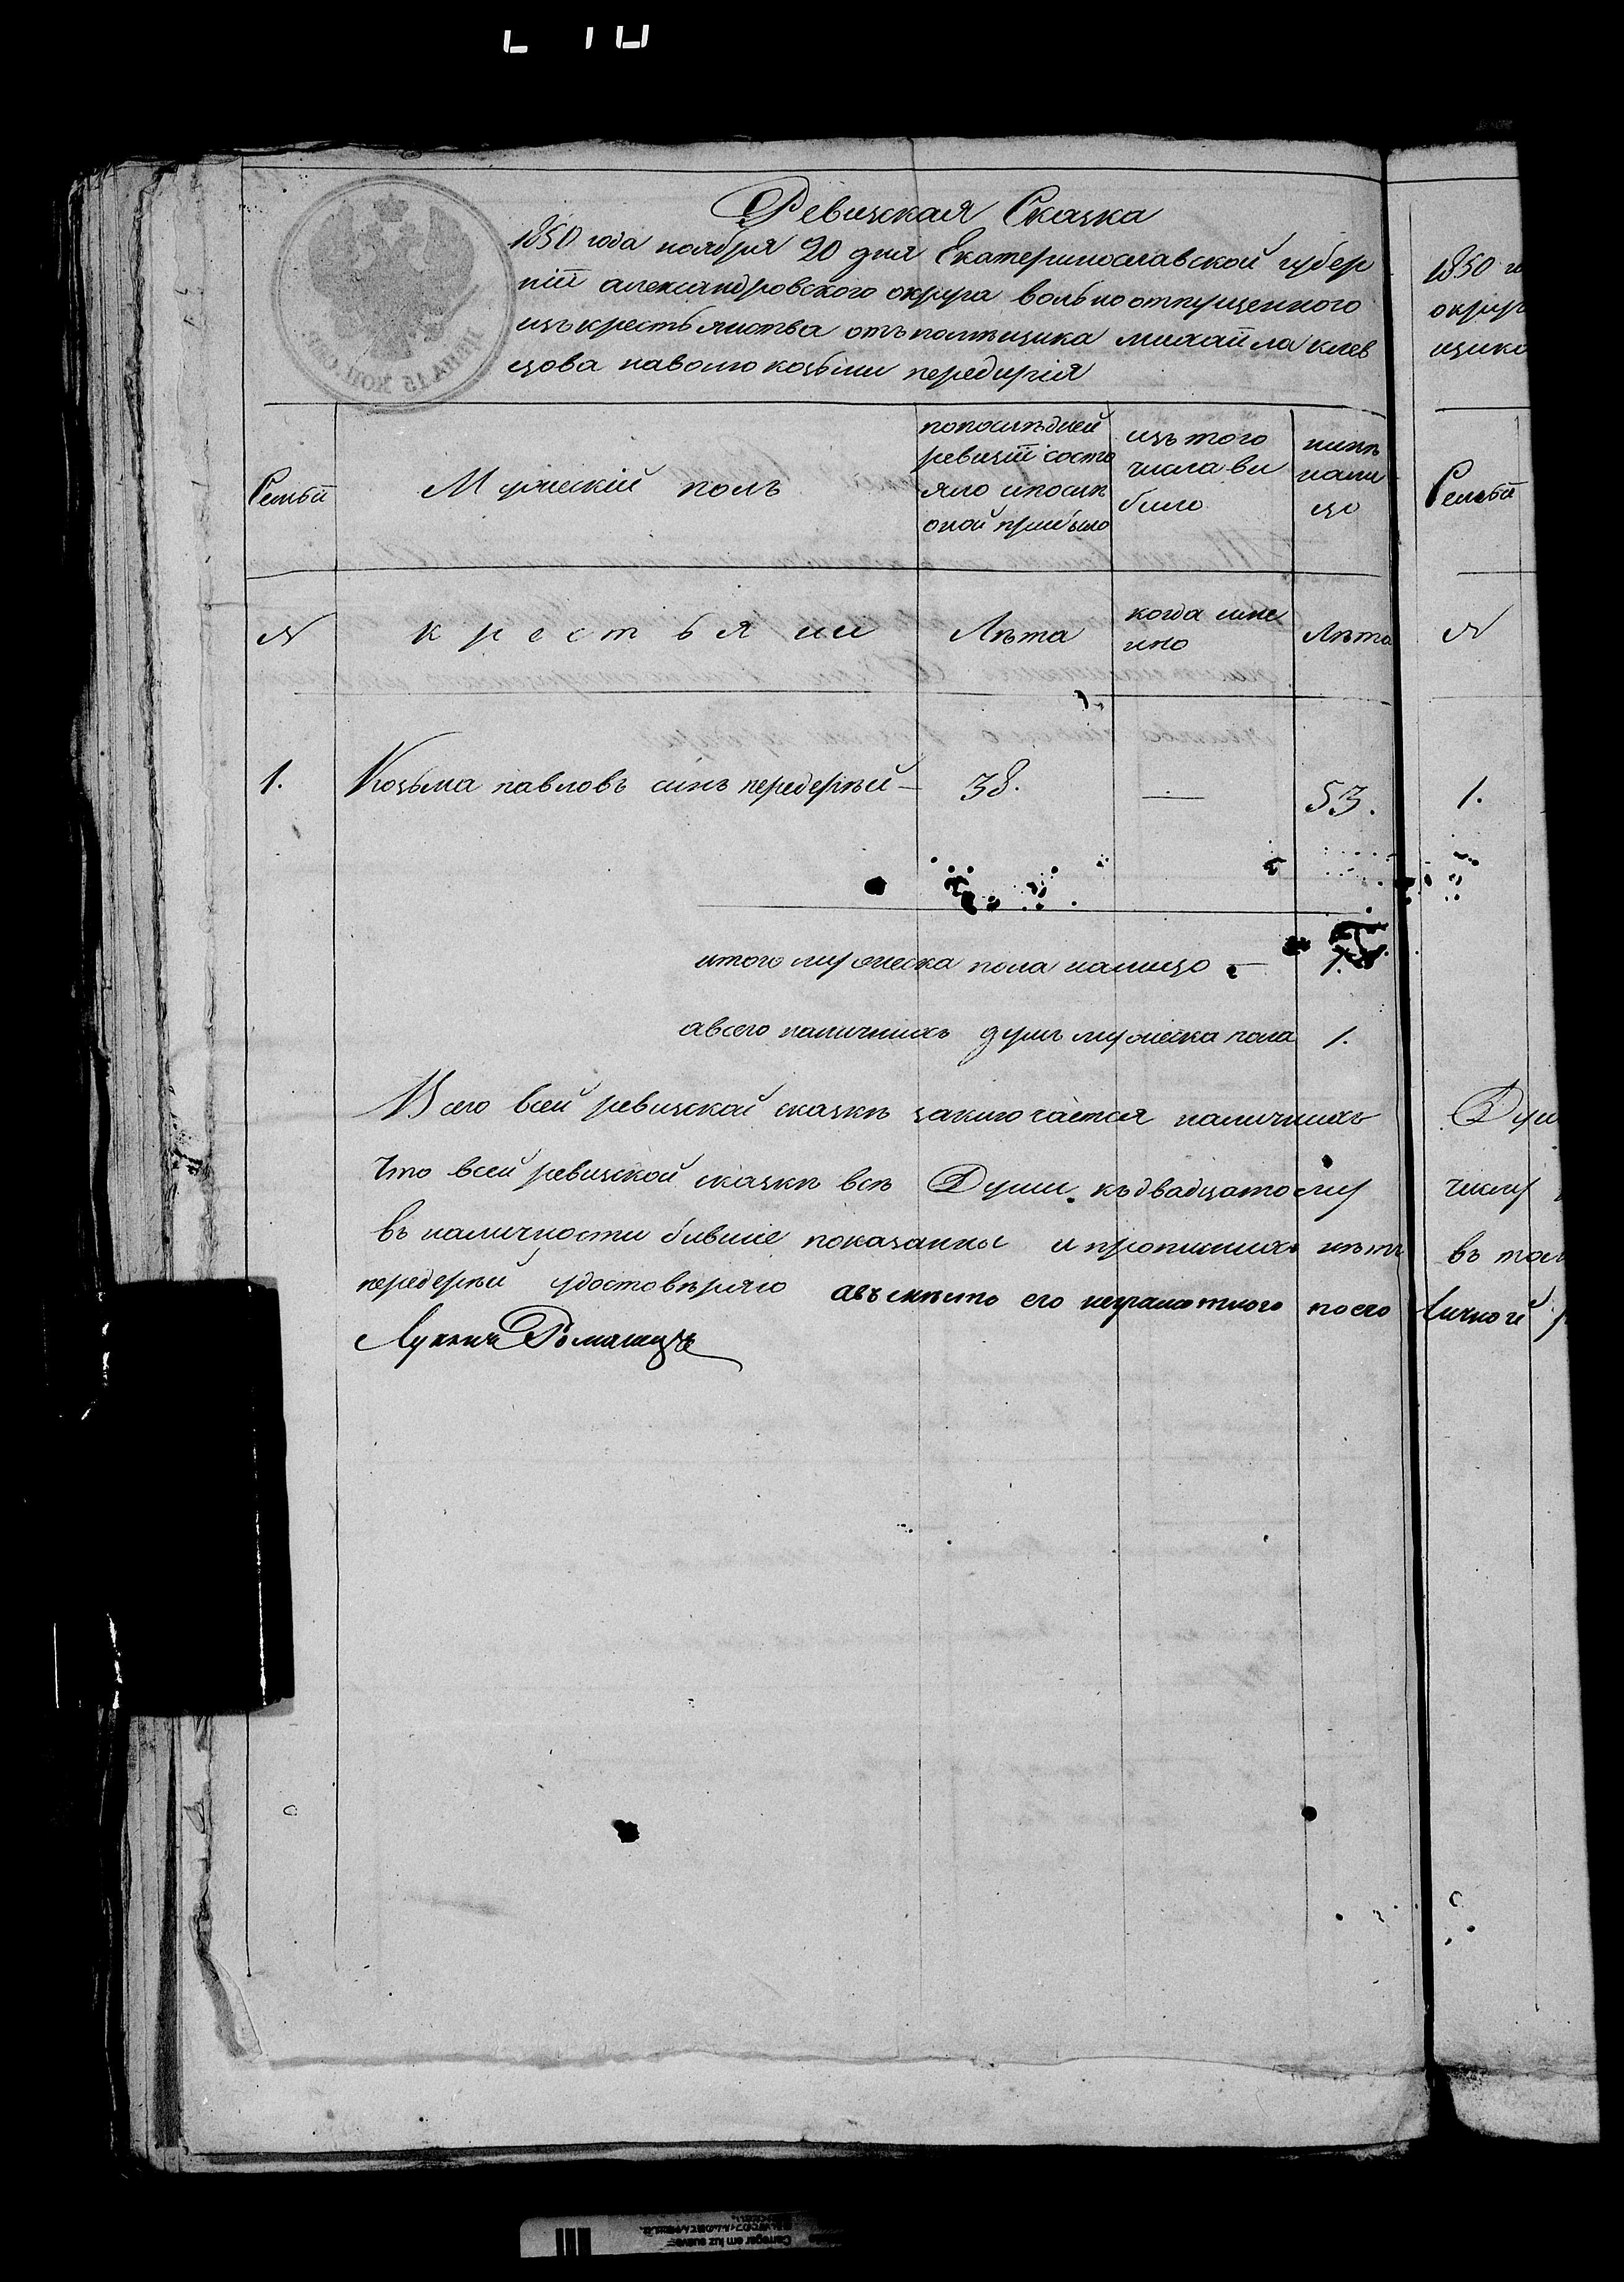 Ревизская Сказка
1850 года ноября 20 дня Екатеринославской губер
нiи александровского округа вольноотпущенного
изъ крестьянства отъ помѣщика михайла клев
цова наволю козьми передирiя
Семьи
Мужескiй полъ
попослѣдней
ревизiи состо
яло ипослѣ
оной прибыло
изъ того
числа ви
било
нинѣ
нали
цо
№
крестьяни
Лѣта
когда имe
нно
Лѣта
1. Козьма павловъ синъ передерѣй – 38. — 53.
итого мужеска пола налицо – 1.
авсего наличнихъ душъ мужеска пола 1.
Всего всей ревизской сказкѣ заключается наличнихъ
Что всей ревизской сказкѣ всѣ Души къдвадцатому
въ наличности бившие показанны и прописнихъ нѣтъ
передерѣй удостовѣряю авъ мѣсто его неграмотного по его
1850 го
округа
щика
Семьи
№
1.
Душ
числу
въ том
Личной
ЦѢНА 15 КОП. СЕР.